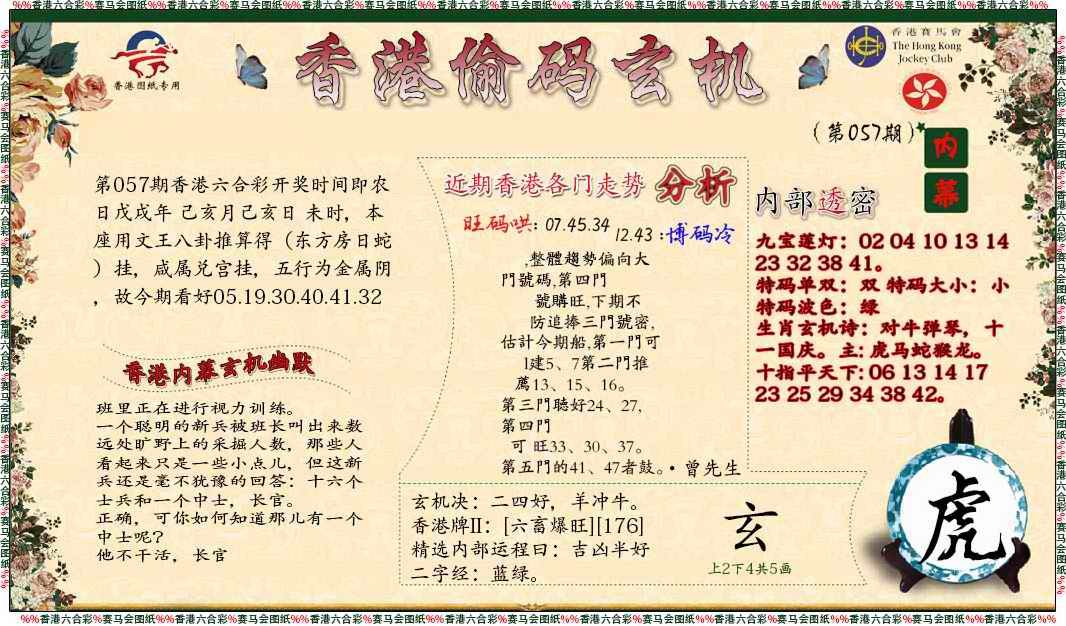 %%香港六合彩%赛马会图纸%%香港六合彩%赛马会图纸%%香港六合彩%赛马会图纸%%香港六合彩%赛马会图纸%%香港六合彩%赛马会图纸%%香港六合彩%%
香港图纸专用
香港偷码玄机
香港賽馬會
The Hong Kong
Jockey Club
(第057期)
内幕
第057期香港六合彩开奖时间即农
日戊戌年 己亥月己亥日 未时，本
座用文王八卦推算得（东方房日蛇
）挂，咸属兑宫挂，五行为金属阴
，故今期看好05.19.30.40.41.32
香港内幕玄机幽默
班里正在进行视力训练。
一个聪明的新兵被班长叫出来数
远处旷野上的采掘人数，那些人
看起来只是一些小点儿，但这新
兵还是毫不犹豫的回答：十六个
士兵和一个中士，长官。
正确，可你如何知道那儿有一个
中士呢？
他不干活，长官
近期香港各门走势 分析
旺码哄: 07.45.34
12.43 :博码冷
,整體趨勢偏向大
門號碼,第四門
號購旺,下期不
防追捧三門號密,
估計今期船,第一門可
l建5、7第二門推
薦13、15、16。
第三門聴好24、27,
第四門
可 旺33、30、37。
第五門的41、47者鼓。·曾先生
玄机决：二四好，羊冲牛。
香港牌II：[六畜爆旺][176]
精选内部运程曰：吉凶半好
二字经：蓝绿。
玄
上2下4共5画
内部透密
九宝莲灯：02 04 10 13 14
23 32 38 41。
特码单双：双 特码大小：小
特码波色：绿
生肖玄机诗：对牛弹琴，十
一国庆。主: 虎马蛇猴龙。
十指平天下: 06 13 14 17
23 25 29 34 38 42。
虎
%%香港六合彩%赛马会图纸%%香港六合彩%赛马会图纸%%香港六合彩%赛马会图纸%%香港六合彩%赛马会图纸%%香港六合彩%赛马会图纸%%香港六合彩%%